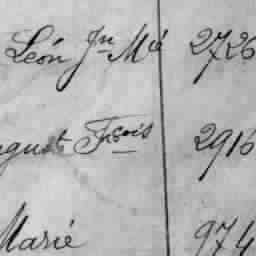 Léon Jn Mié 2726
August Fçois 2916
Marie 974